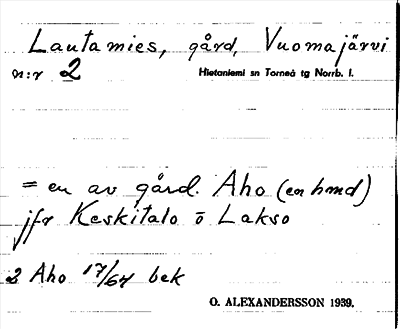 Lautamies, gård, Vuomajärvi
n:r 2 Hietaniemi sn Torneå tg Norrb. l.
= en av gård. Aho (en hmd)
jfr Keskitalo o Lakso
2 Aho 17/64 bek
O. ALEXANDERSSON 1939.